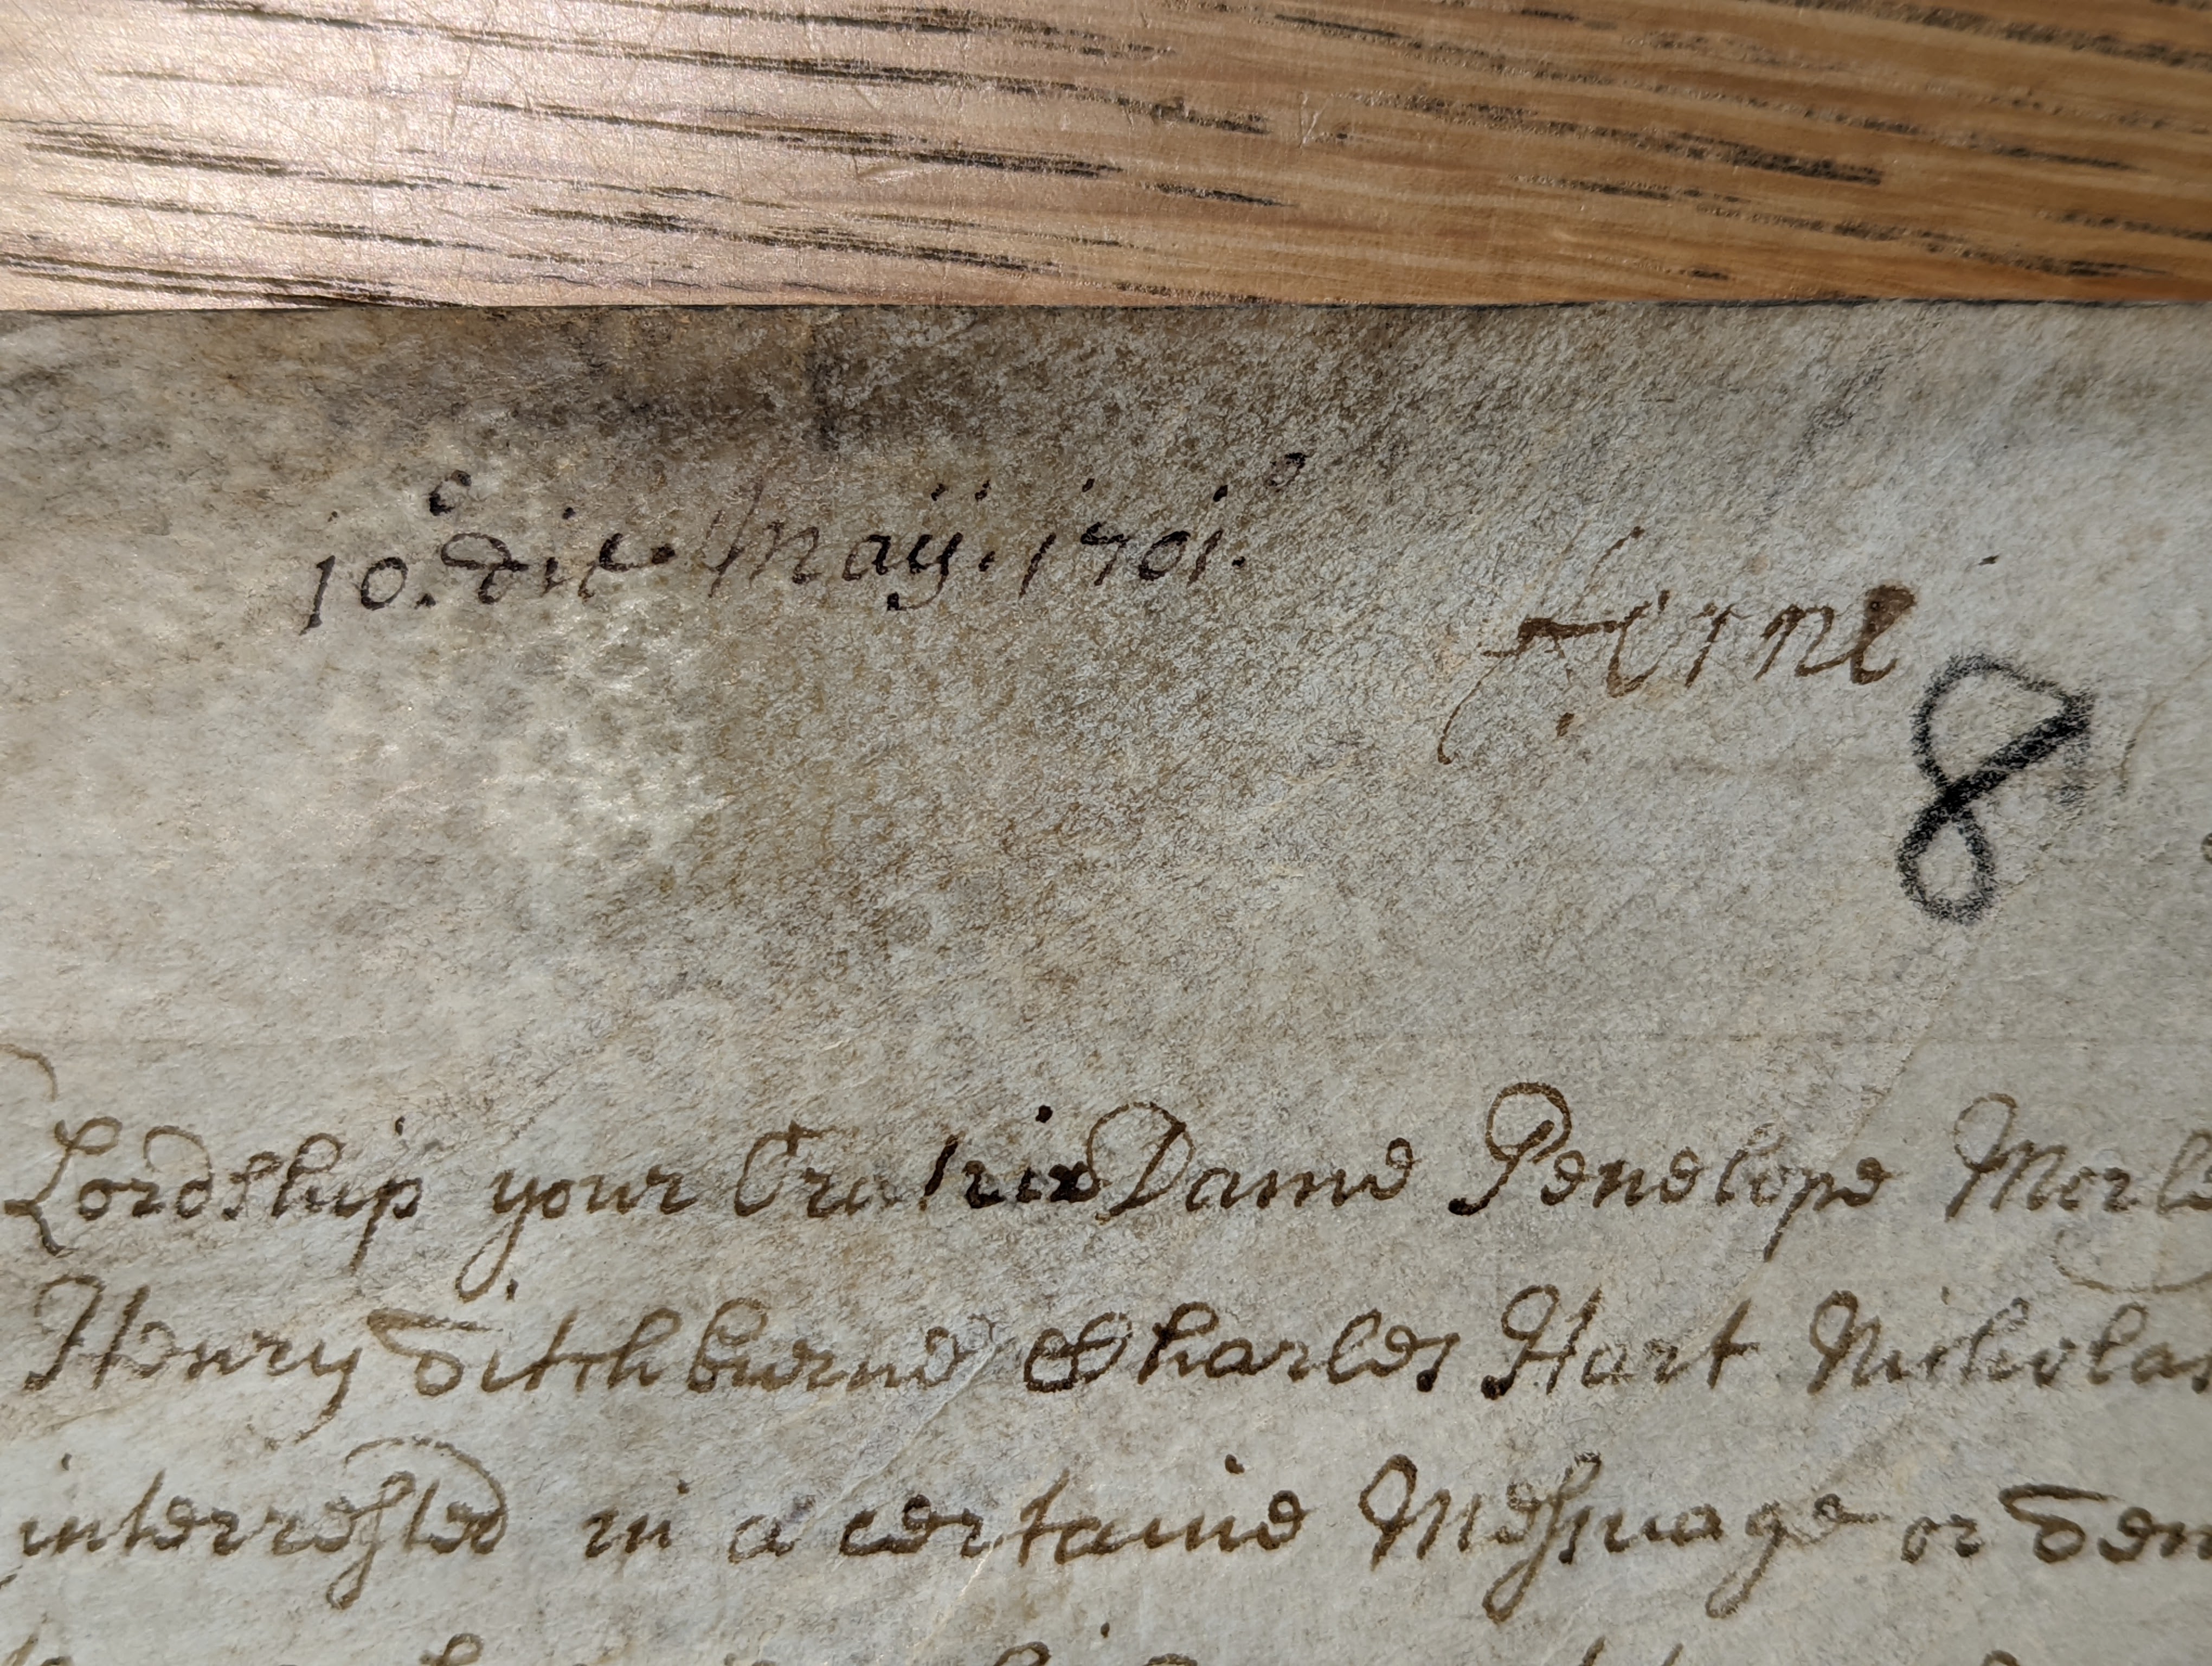 10.º die. Maij. 1701.º
ferne
8
Lordship your Oratrix Dame Penelope Morle
Henry Ditchburne & Charles Hart Nicholas
interrested in a certaine Messuage or Ten